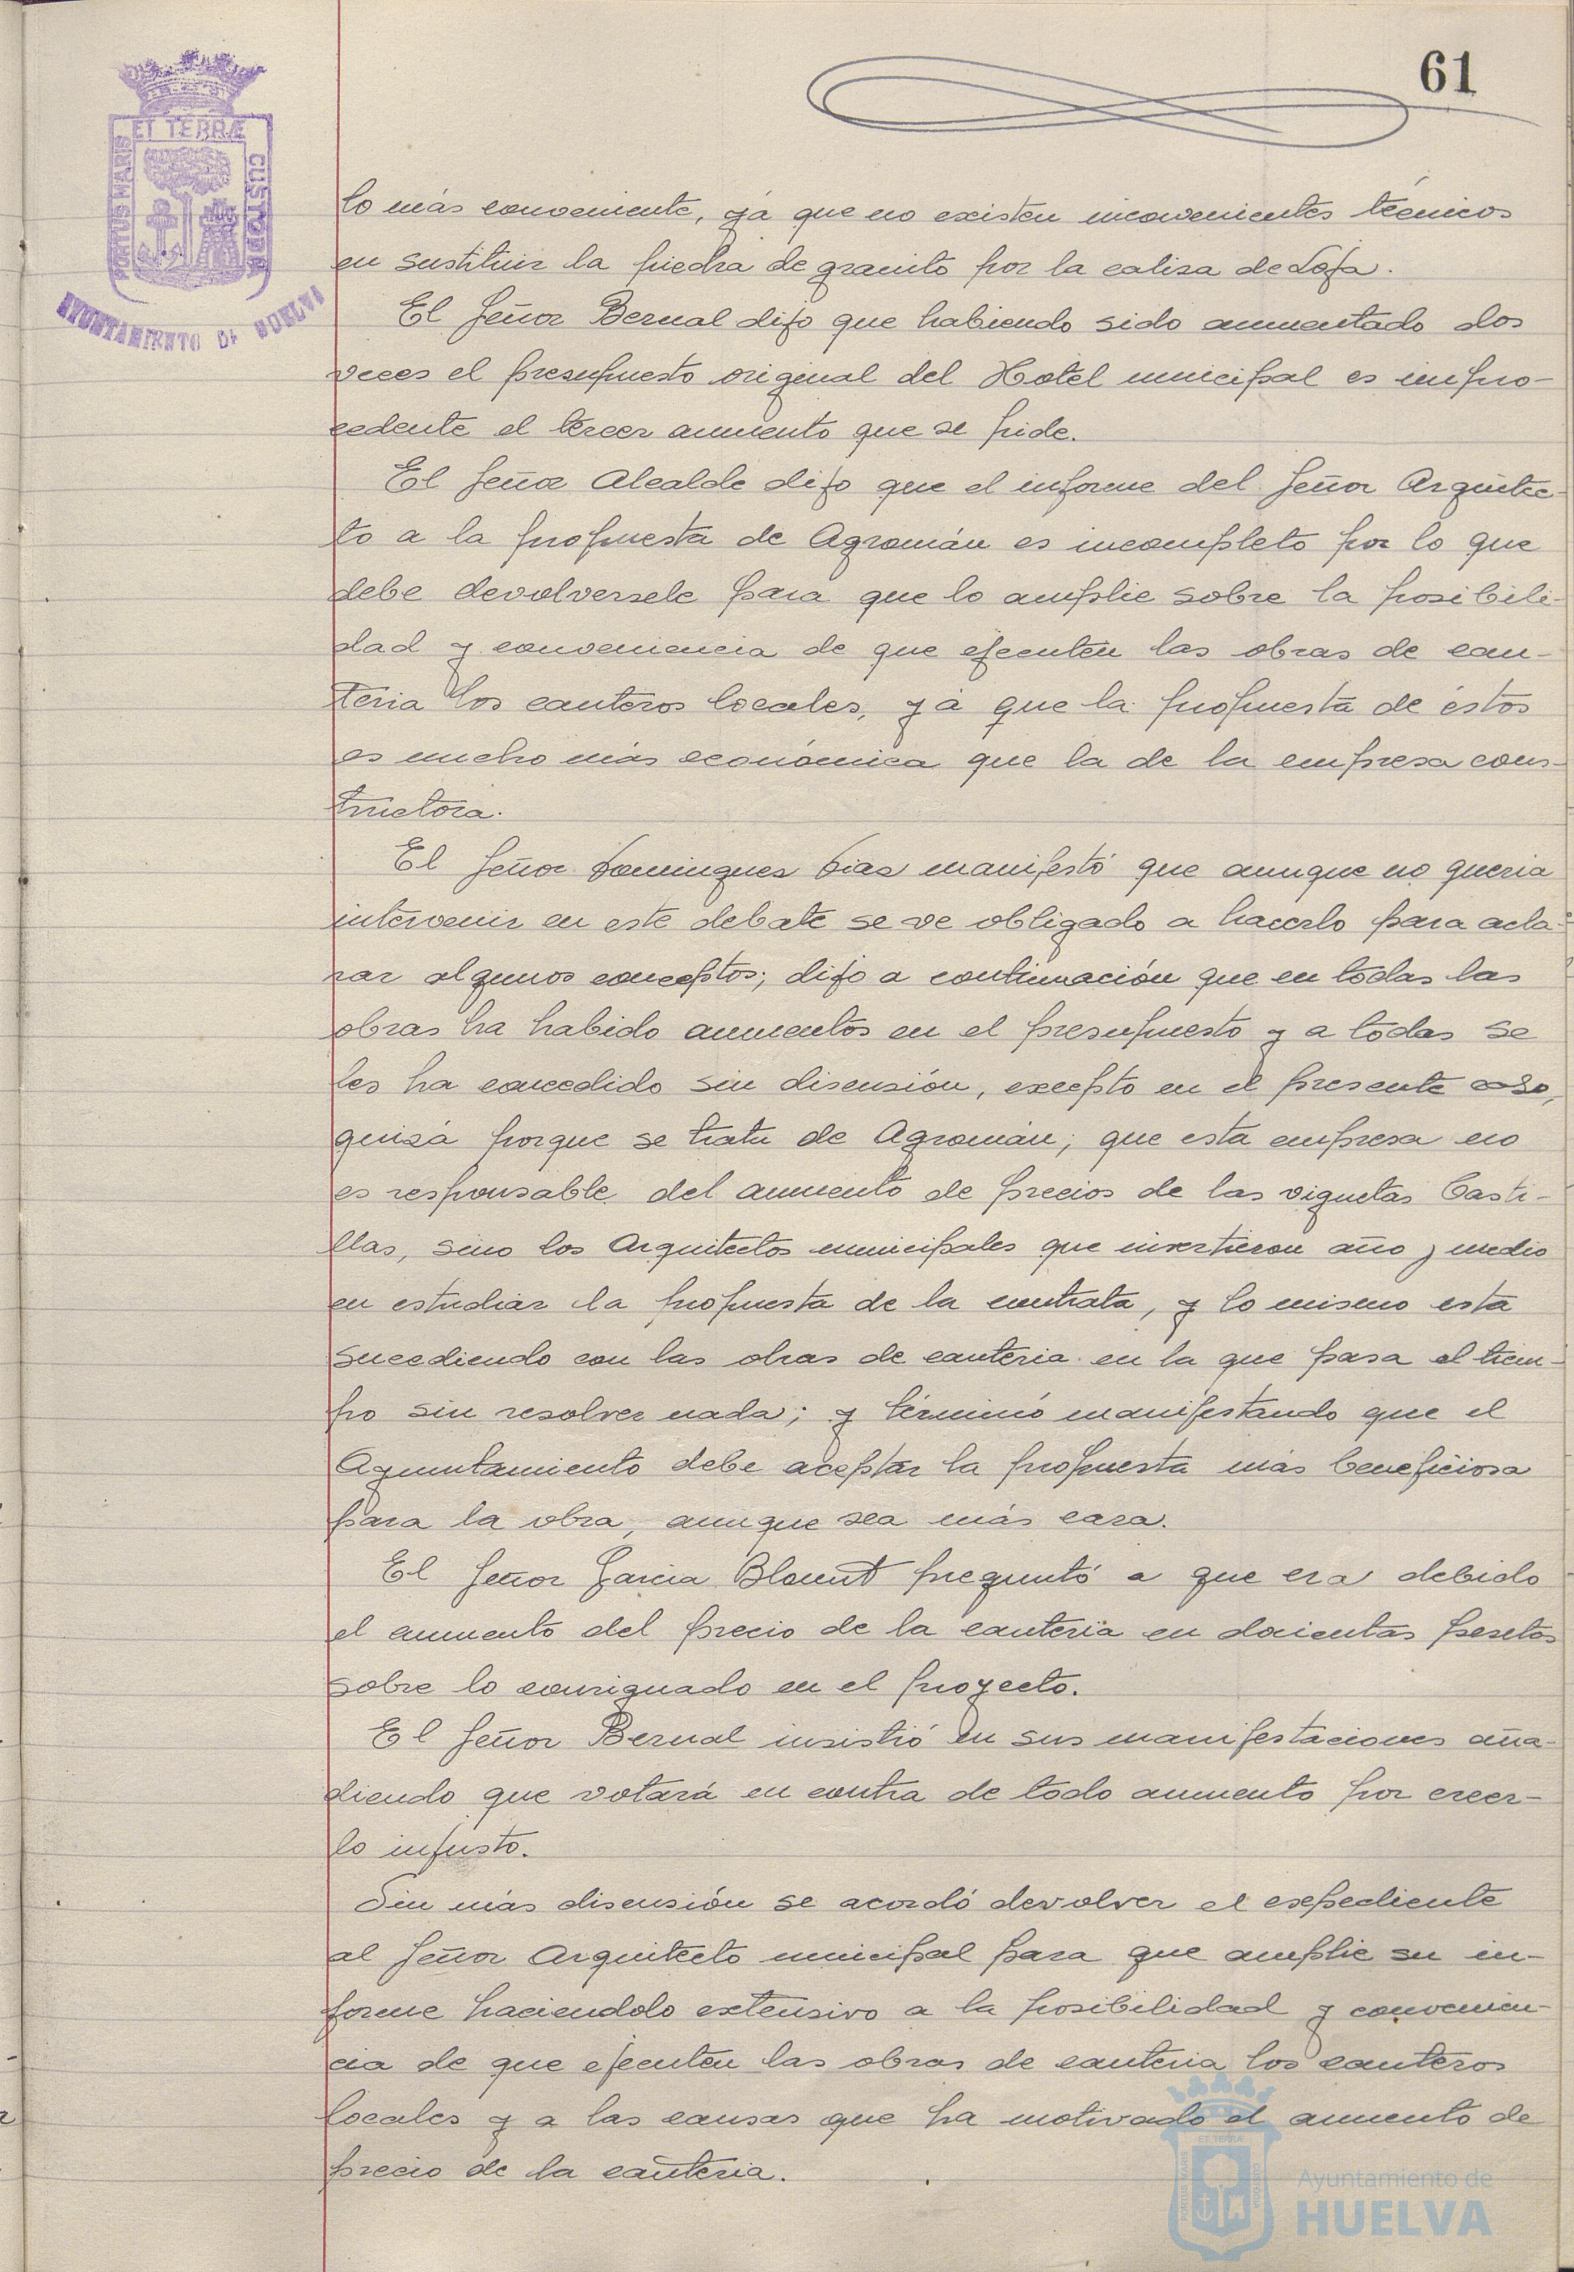 61
ET TERRÆ
PORTUS MARIS
CUSTODIA
AYUNTAMIENTO DE HUELVA
lo más conveniente, yá que no existen inconvenientes técnicos
en sustituir la piedra de granito por la caliza de Loja.
El Señor Bernal dijo que habiendo sido aumentado dos
veces el presupuesto original del Hotel municipal es impro-
cedente el tercer aumento que se pide.
El Señor Alcalde dijo que el informe del Señor Arquitec-
to a la propuesta de Agromán es incompleto por lo que
debe devolversele para que lo amplie sobre la posibili-
dad y conveniencia de que ejecuten las obras de can-
teria los canteros locales, yá que la propuesta de éstos
es mucho más económica que la de la empresa cons-
tructora.
El Señor Dominguez Diaz manifestó que aunque no queria
intervenir en este debate se ve obligado a hacerlo para acla-
rar algunos conceptos; dijo a continuación que en todas las
obras ha habido aumentos en el presupuesto y a todas se
les ha concedido sin discusión, excepto en el presente caso,
quizá porque se trata de Agromán; que esta empresa no
es responsable del aumento de precios de las viguetas Casti-
llas, sino los Arquitectos municipales que invertieron año y medio
en estudiar la propuesta de la contrata, y lo mismo esta
sucediendo con las obras de canteria en la que pasa el tiem-
po sin resolver nada; y términó manifestando que el
Ayuntamiento debe aceptar la propuesta más beneficiosa
para la obra, aunque sea más cara.
El Señor Garcia Blount preguntó a que era debido
el aumento del precio de la canteria en docientas pesetas
sobre lo consignado en el proyecto.
El Señor Bernal insistió en sus manifestaciones aña-
diendo que votará en contra de todo aumento por creer-
lo injusto.
Sin más discusión se acordó devolver el expediente
al Señor Arquitecto municipal para que amplie su in-
forme haciendolo extensivo a la posibilidad y convenien-
cia de que ejecuten las obras de canteria los canteros
locales y a las causas que ha motivado el aumento de
precio de la canteria.
Ayuntamiento de
HUELVA